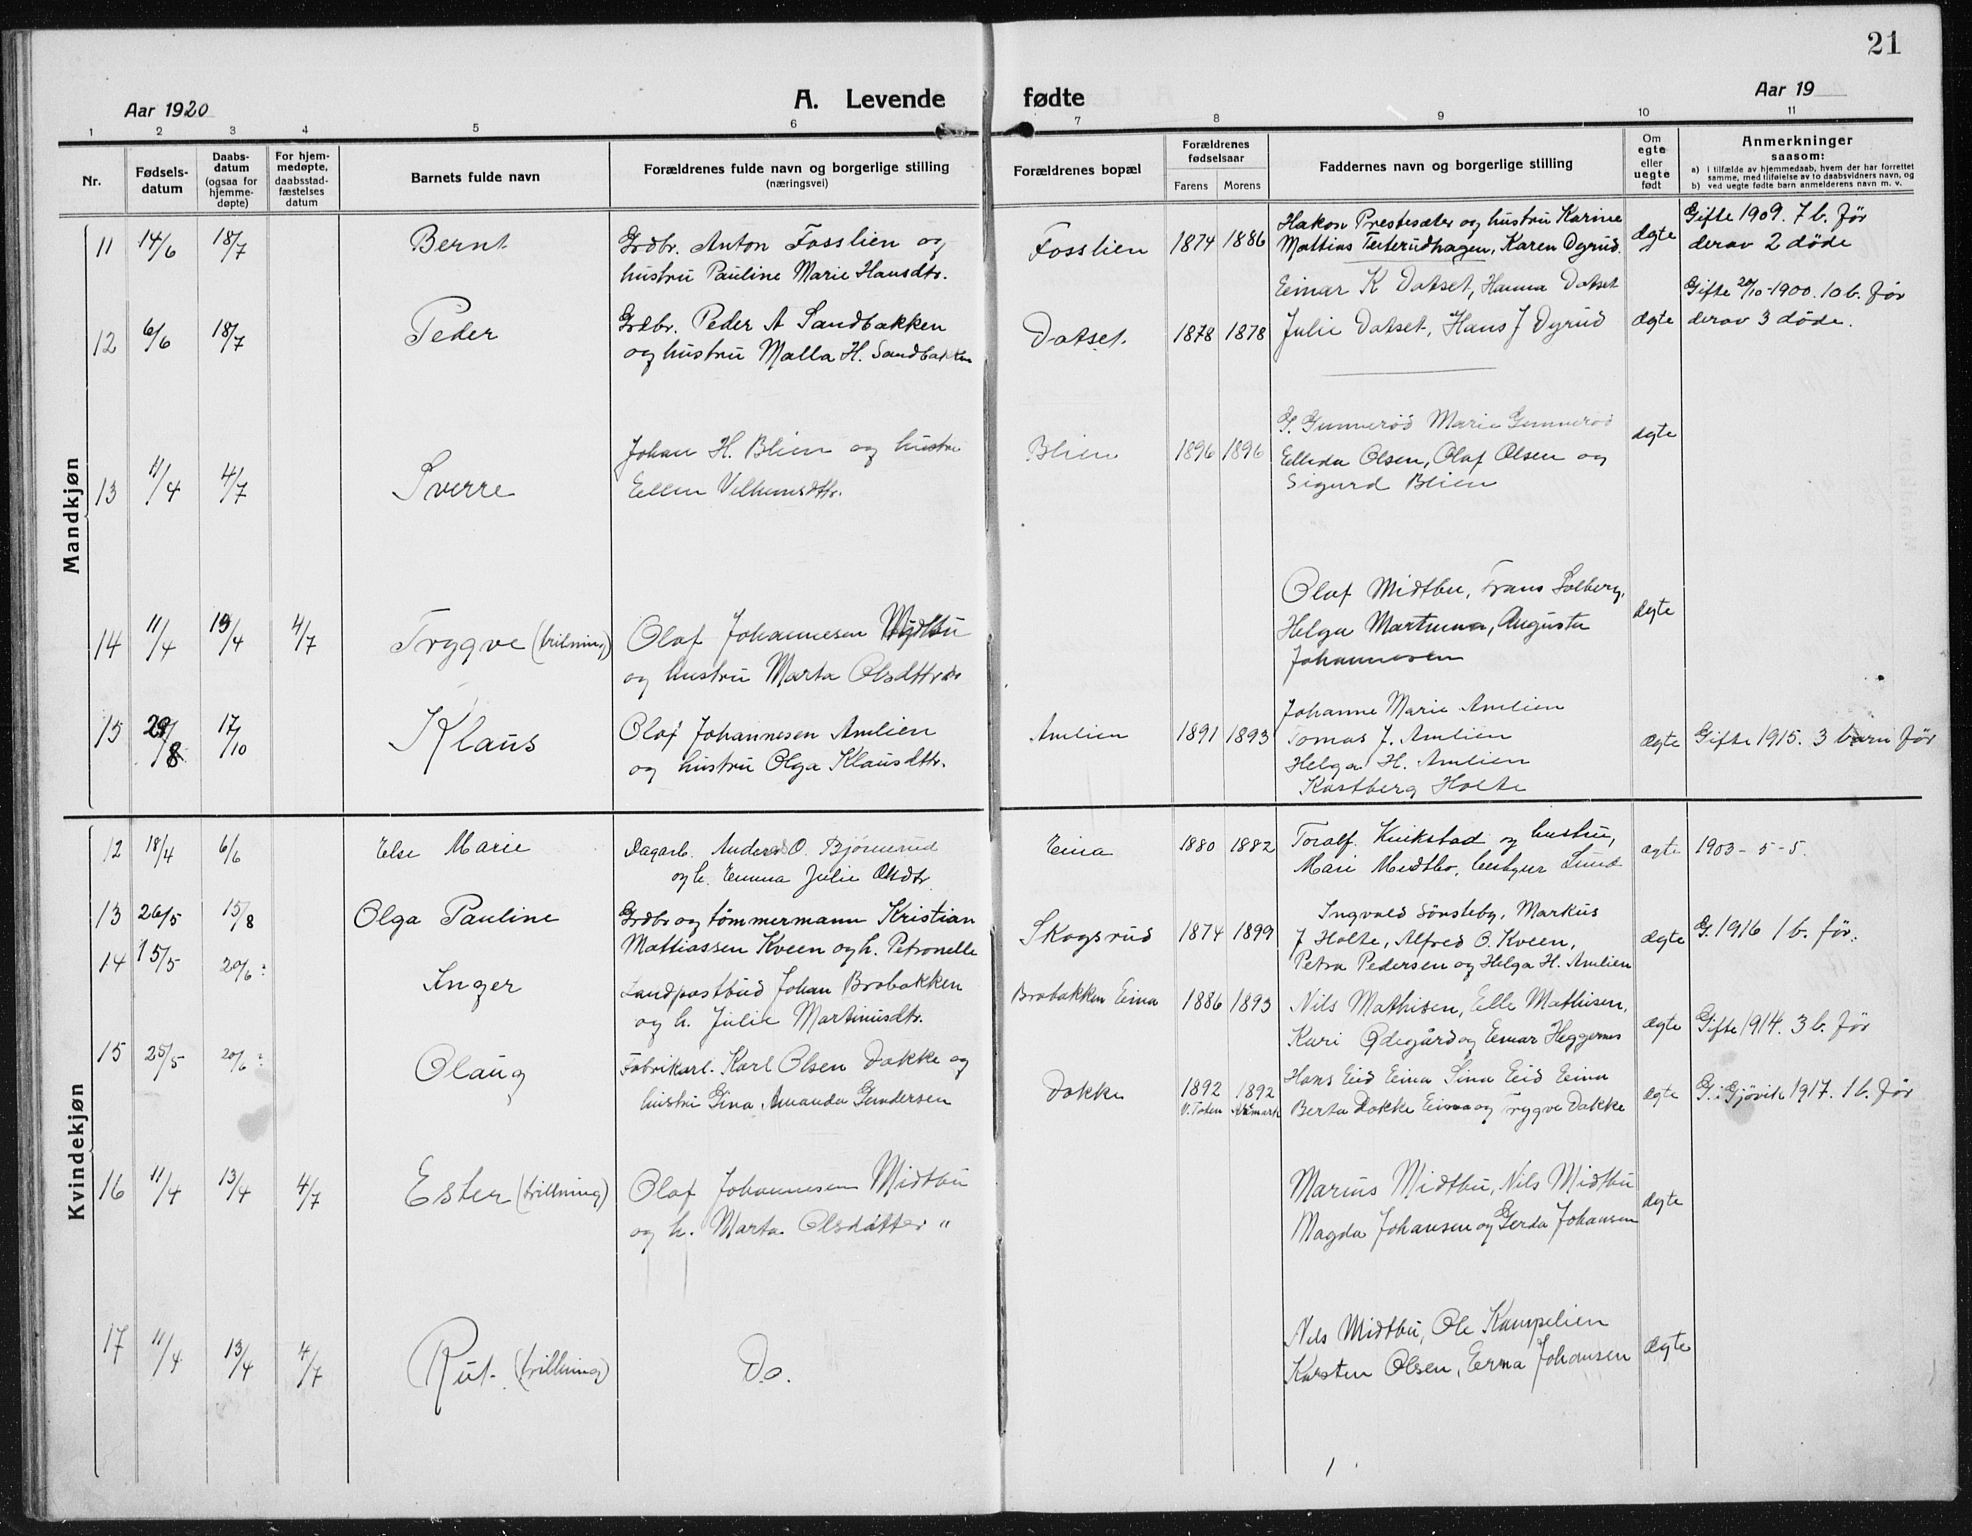 21
Aar 1920
A. Levende fødte
Aar 19
1 2 3 4 5 6 7 8 9 10 11
Nr.
Fødsels-
datum
Daabs-
datum
(ogsaa for
hjemme-
døpte)
For hjem-
medøpte,
daabsstad-
fæstelses
datum
Barnets fulde navn
Forældrenes fulde navn og borgerlige stilling
(næringsvei)
Forældrenes bopæl
Forældrenes
fødselsaar
Farens Morens
Faddernes navn og borgerlige stilling
Om
egte
eller
uegte
født
Anmerkninger
saasom:
a) i tilfælde av hjemmedaab, hvem der har forrettet
samme, med tilføielse av to daabsvidners navn, og
b) ved uegte fødte barn anmelderens navn m. v.
Mandkjøn
11 14/6 18/7 Bernt
Grdbr. Anton Fosslien og
hustru Pauline Marie Hansdtr.
Fosslien 1874 1886
Hakon Prestesæter og hustru Karine
Mattias Teterudhagen, Karen Dyrud.
ægte
Gifte 1909. 7 b. før
derav 2 døde
12 6/6 18/7 Peder
Grdbr. Peder A Sandbakken
og hustru Malla H. Sandbakken
Datset. 1878 1878
Einar K Datset, Hanna Datset
Julie Datset, Hans J Dyrud
ægte
Gifte 20/10-1900. 10 b. før
derav 3 døde.
13 11/4 4/7 Sverre
Johan H. Blien og hustru
Ellen Vilhemsdtr.
Blien 1896 1896
G. Gunnerød Marie Gunnerød
Ellida Olsen, Olaf Olsen og
Sigurd Blien
ægte
14 11/4 13/4 4/7 Trygve (trilning)
Olaf Johannesen Midtbu
og hustru Marta Olsdttr
Olaf Midtbu, Frans Solberg,
Helga Martinsen, Augusta
Johannesen
ægte
15 29/8 17/10 Klaus
Olaf Johannesen Amlien
og hustru Olga Klausdttr.
Amlien 1891 1893
Johanne Marie Amlien
Tomas J. Amlien
Helga H. Amlien
Kastberg Holte
ægte
Gifte 1915. 3 barn før
Kvindekjøn
12 18/4 6/6 Else Marie
Dagarb. Anders O. Bjørnerud
og h. Emma Julie Olsdtr.
Eina 1880 1882
Toralf Kvikstad og hustru,
Mari Midtbo, Lund
ægte
1903 - 5 - 5.
13 26/5 15/8 Olga Pauline
Grdbr og tømmermann Kristian
Mattiassen Kveen og h. Petronelle
Skogsrud 1874 1899
Ingvald Sönsteby, Markus
J Holte, Alfred O. Kveen,
Petra Pedersen og Helga H. Amlien
ægte
G. 1916 1 b. før.
14 15/5 20/6 Inger
Landpostbud Johan Brobakken
og h. Julie Martinusdtr.
Brobakken Eina 1886 1893
Nils Mathisen, Elle Mathisen,
Kari Ødegård og Einar Heggernes
ægte
Gifte 1914. 3 b. før
15 25/5 20/6 Olaug
Fabrikarb. Karl Olsen Dokke og
hustru Gina Amanda Gundersen
Dokke 1892 1892
V. Toten
Hans Eid Eina Sina Eid Eina
Berta Dokke Eina og Trygve Dokke
ægte
G. i Gjøvik 1917. 1 b. før
16 11/4 13/4 4/7 Ester (trillning)
Olaf Johannesen Midtbu
og h. Marta Olsdatter "
Marius Midtbu, Nils Midtbu
Magda Johansen og Gerda Johansen
ægte
17 11/4 13/4 4/7 Rut (trillning)
Do.
Nils Midtbu, Ole Kampelien
Karsten Olsen, Erna Johansen
ægte